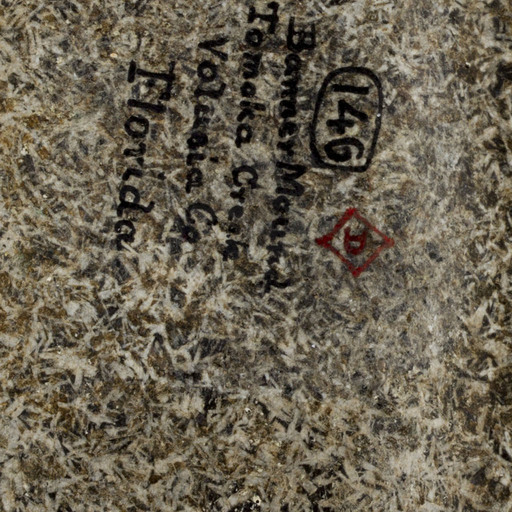 146
D
Barney Mound
Tomoka Creek
Volusia Co
Florida